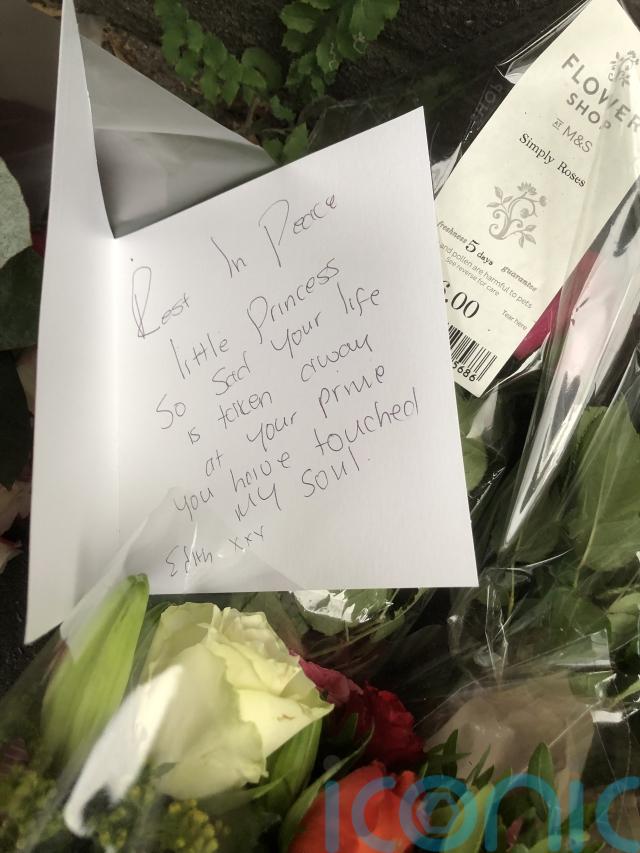 Rest In Peace
little Princess
So sad your life
is taken away
at your prime
you have touched
my soul.
Edith xxx
FLOWER
SHOP
AT M&S
Simply Roses
freshness 5 days guarantee
and pollen are harmful to pets
See reverse for care
.00
Tear here
5686
iconic